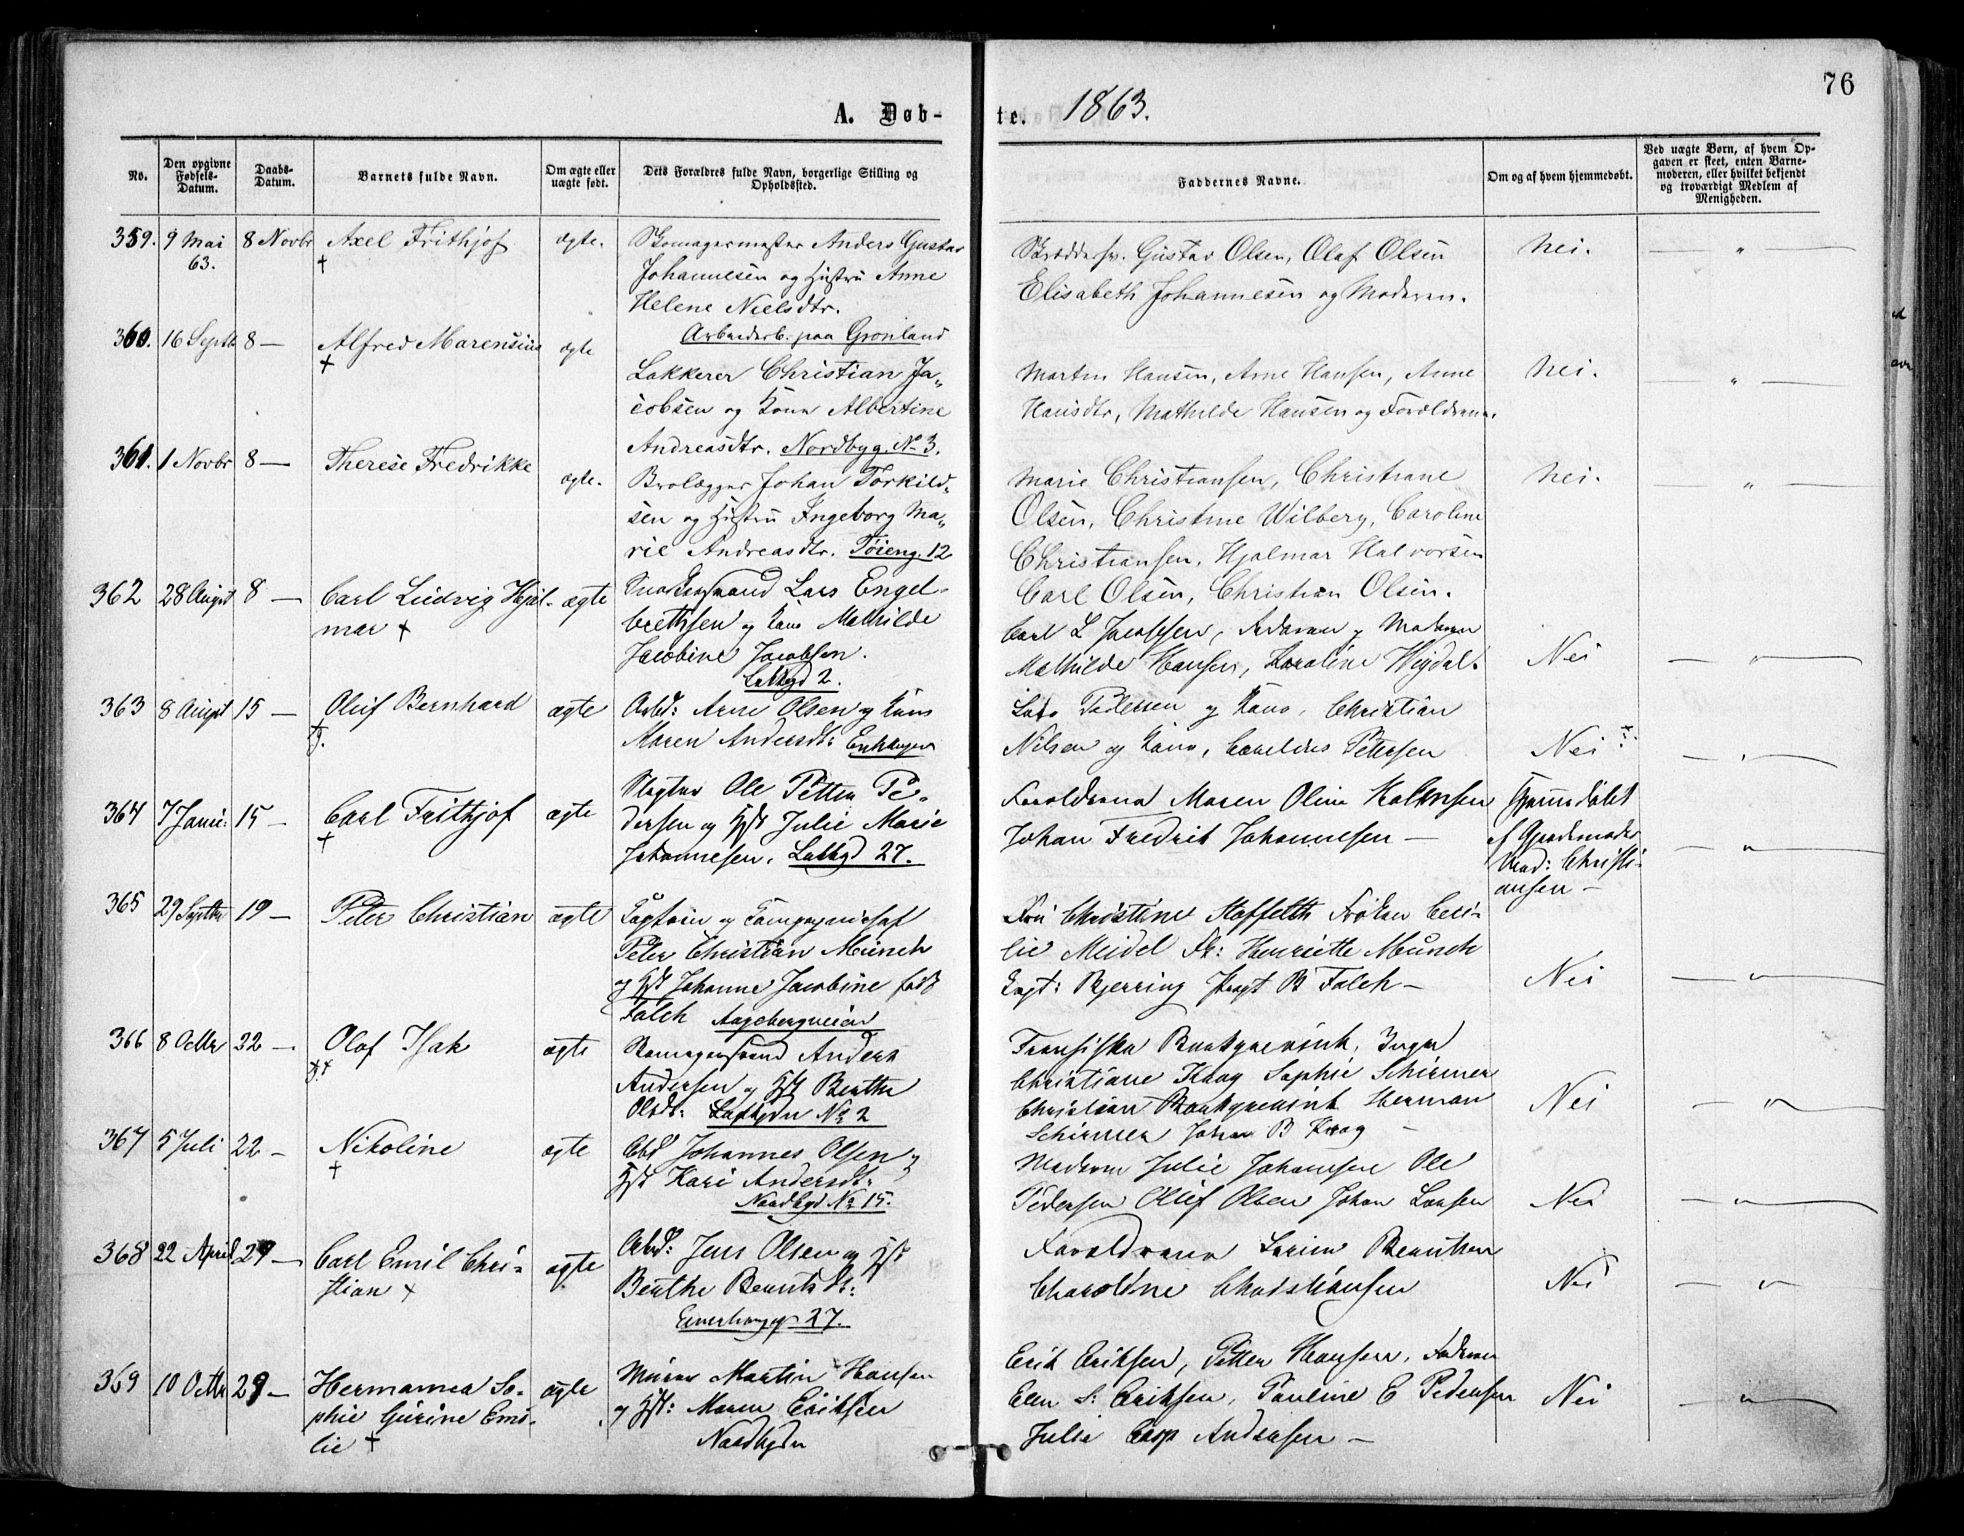 76
A. Døbte. 1863.
No.
Den opgivne Fødsels-Datum.
Daabs-Datum.
Barnets fulde Navn.
Om ægte eller uægte født.
Dets Forældres fulde Navn, borgerlige Stilling og Opholdssted.
Faddernes Navne.
Om og af hvem hjemmedøbt.
Ved uægte Børn, af hvem Op-
gaven er skeet, enten Barne-
moderen, eller hvilket bekjendt
og troværdigt Medlem af
Menigheden.
359. 9 Mai 63. 8 Novbr Axel Frithjof + ægte.
Skomagermester Anders Gustav
Johannesen og Hustru Anne
Helene Nielsdtr.
Arbeiderb. paa Grønland
Skrædersv. Gustav Olsen, Olaf Olsen
Elisabeth Johannesen og Moderen.
Nei. "
360. 16 Septb 8 — Alfred Marensius + ægte
Lakkerer Christian Ja„
cobsen og Kone Albertine
Andreasdtr. Nordbyg. No 3.
Martin Hansen, Arne Hansen, Anne
Hansdtr, Mathilde Hansen og Forældrene.
Nei. "
361. 1 Novbr 8 — Therese Fredrikke ægte.
Brolægger Johan Torkild„
sen og Hustru Ingeborg Ma„
rie Andreasdtr. Tøieng. 12
Marie Christiansen, Christiane
Olsen, Christine Wilberg, Caroline
Christiansen, Hjalmar Halvorsen
Carl Olsen, Christian Olsen.
Nei. "
362 28 August 8 — Carl Ludvig Hjal-
mar + ægte
Lars Engel-
brethsen og Kone Mathilde
Jacobine Jacobsen.
Lakkgd 2.
Carl L Jacobsen, Faderen og Moderen
Mathilde Hansen, Karoline Wigdal.
Nei "
363 8 August 15 — Oluf Bernhard ægte
Arbd: Arne Olsen og Kone
Maren Andersdt:
Lars Pedersen og Kone, Christian
Nilsen og Kone, Petersen
Nei "
364 7 Janu. 15 — Carl Frithjof + ægte
Slagter Ole Petter Pe-
dersen og Hst Julie Marie
Johannesen. Lakkgd 27.
Forældrene Maren Oline
Johan Fredrik Johannesen —
Hjemmedøbt
af Gjordemoder
Mad: Christi-
ansen —
"
365 29 Septbr 19 — Peter Christian ægte
Captein og Compagnichef
Peter Christian Münch
og Hst Johanne Jacobine født
Falch Aagebergveien
Fru Christine Frøken Ceci-
lie Meidel Fr: Henriette Munch
Capt: Bjerring B Falch —
Nei "
366 8 Octbr 22 — Olaf Isak ægte
Skomagersvend Anders
Andersen og Hst Berthe
Olsdt: Lakkgdn No 2
Christiane Krag Sophie Schirmer
Christian Herman
Schirmer Johan B Krag —
Nei "
367 5 Juli 22 — Nikoline + ægte
Arbd Johannes Olsen og
Hst Kari Andersdt:
Nordbyd. No 15.
Moderen Julie Johansen Ole
Pedersen Oluf Olsen Johan Larsen
Nei "
368 22 April 29 — Carl Emil Chri-
stian + ægte
Arbd: Jens Olsen og Hst
Berthe Berntsdt:
Enerhaugen 27.
Forældrene Berntsen
Charoline Christiansen
Nei "
369 10 Octbr 29 — Hermanna So-
phie Gurine Emi-
lie + ægte
Murer Martin Hansen
og Hst: Maren Eriksen
Nordbydn
Erik Eriksen, Petter Hansen, Faderen
Elen S: Eriksen, Pauline E Pedersen
Julia Andersen —
Nei "